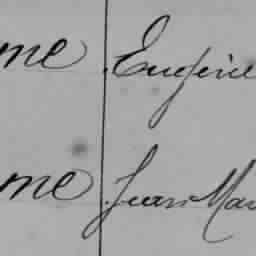 me Eugène
me Jean Mar